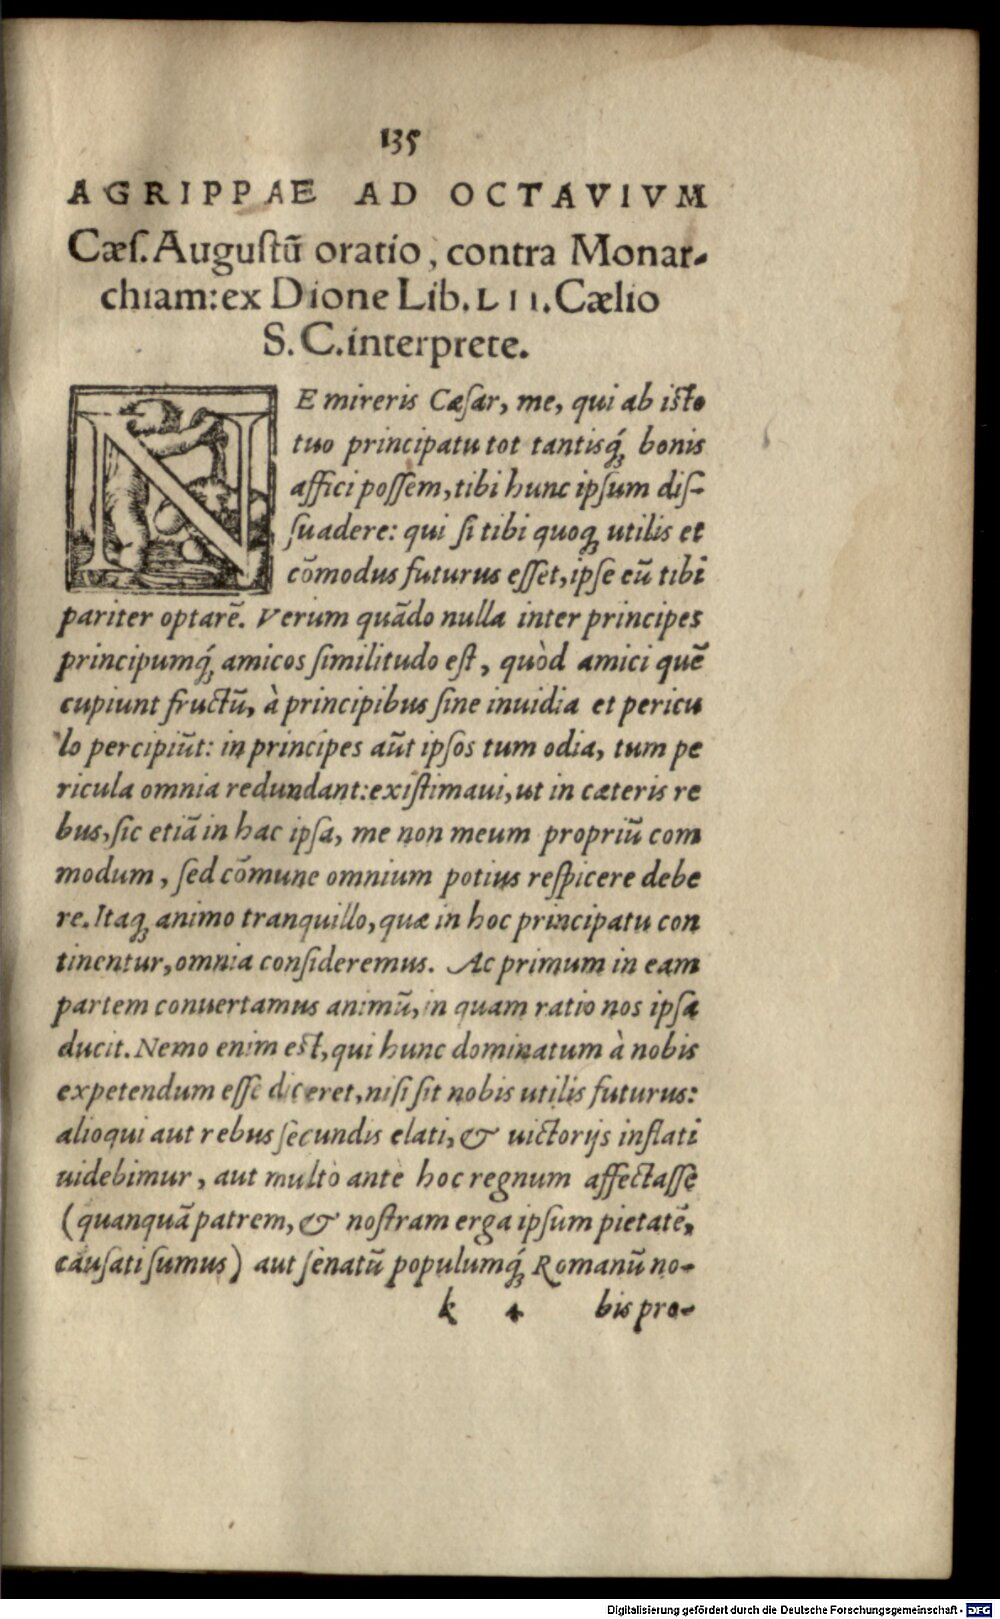 135
AGRIPPAE AD OCTAVIVM
Cæſ. Auguſtũ oratio, contra Monar-
chiam: ex Dione Lib. LII. Cælio
S. C. interprete.
NE mireris Cæſar, me, qui ab iſto
tuo principatu tot tantisq́; bonis
affici poſſem, tibi hunc ipſum diſ-
ſuadere: qui ſi tibi quoq; utilis et
cõmodus futurus eſſet, ipſe eũ tibi
pariter optarẽ. Verum quãdo nulla inter principes
principumq́; amicos ſimilitudo eſt, quòd amici quẽ
cupiunt fructũ, à principibus ſine inuidia et pericu
lo percipiũt: in principes aũt ipſos tum odia, tum pe
ricula omnia redundant: exiſtimaui, ut in cæteris re
bus, ſic etiã in hac ipſa, me non meum propriũ com
modum, ſed cõmune omnium potius reſpicere debe
re. Itaq; animo tranquillo, quæ in hoc principatu con
tinentur, omnia conſideremus. Ac primum in eam
partem conuertamus animũ, in quam ratio nos ipſa
ducit. Nemo enim eſt, qui hunc dominatum à nobis
expetendum eſſe diceret, niſi ſit nobis utilis futurus:
alioqui aut rebus ſecundis elati, & uictorijs inflati
uidebimur, aut multò antè hoc regnum affectaſſe
(quanquã patrem, & noſtram erga ipſum pietatẽ,
cauſati ſumus) aut ſenatũ populumq́; Romanũ no-
k 4 bis pro-
Digitalisierung gefördert durch die Deutsche Forschungsgemeinschaft - DFG